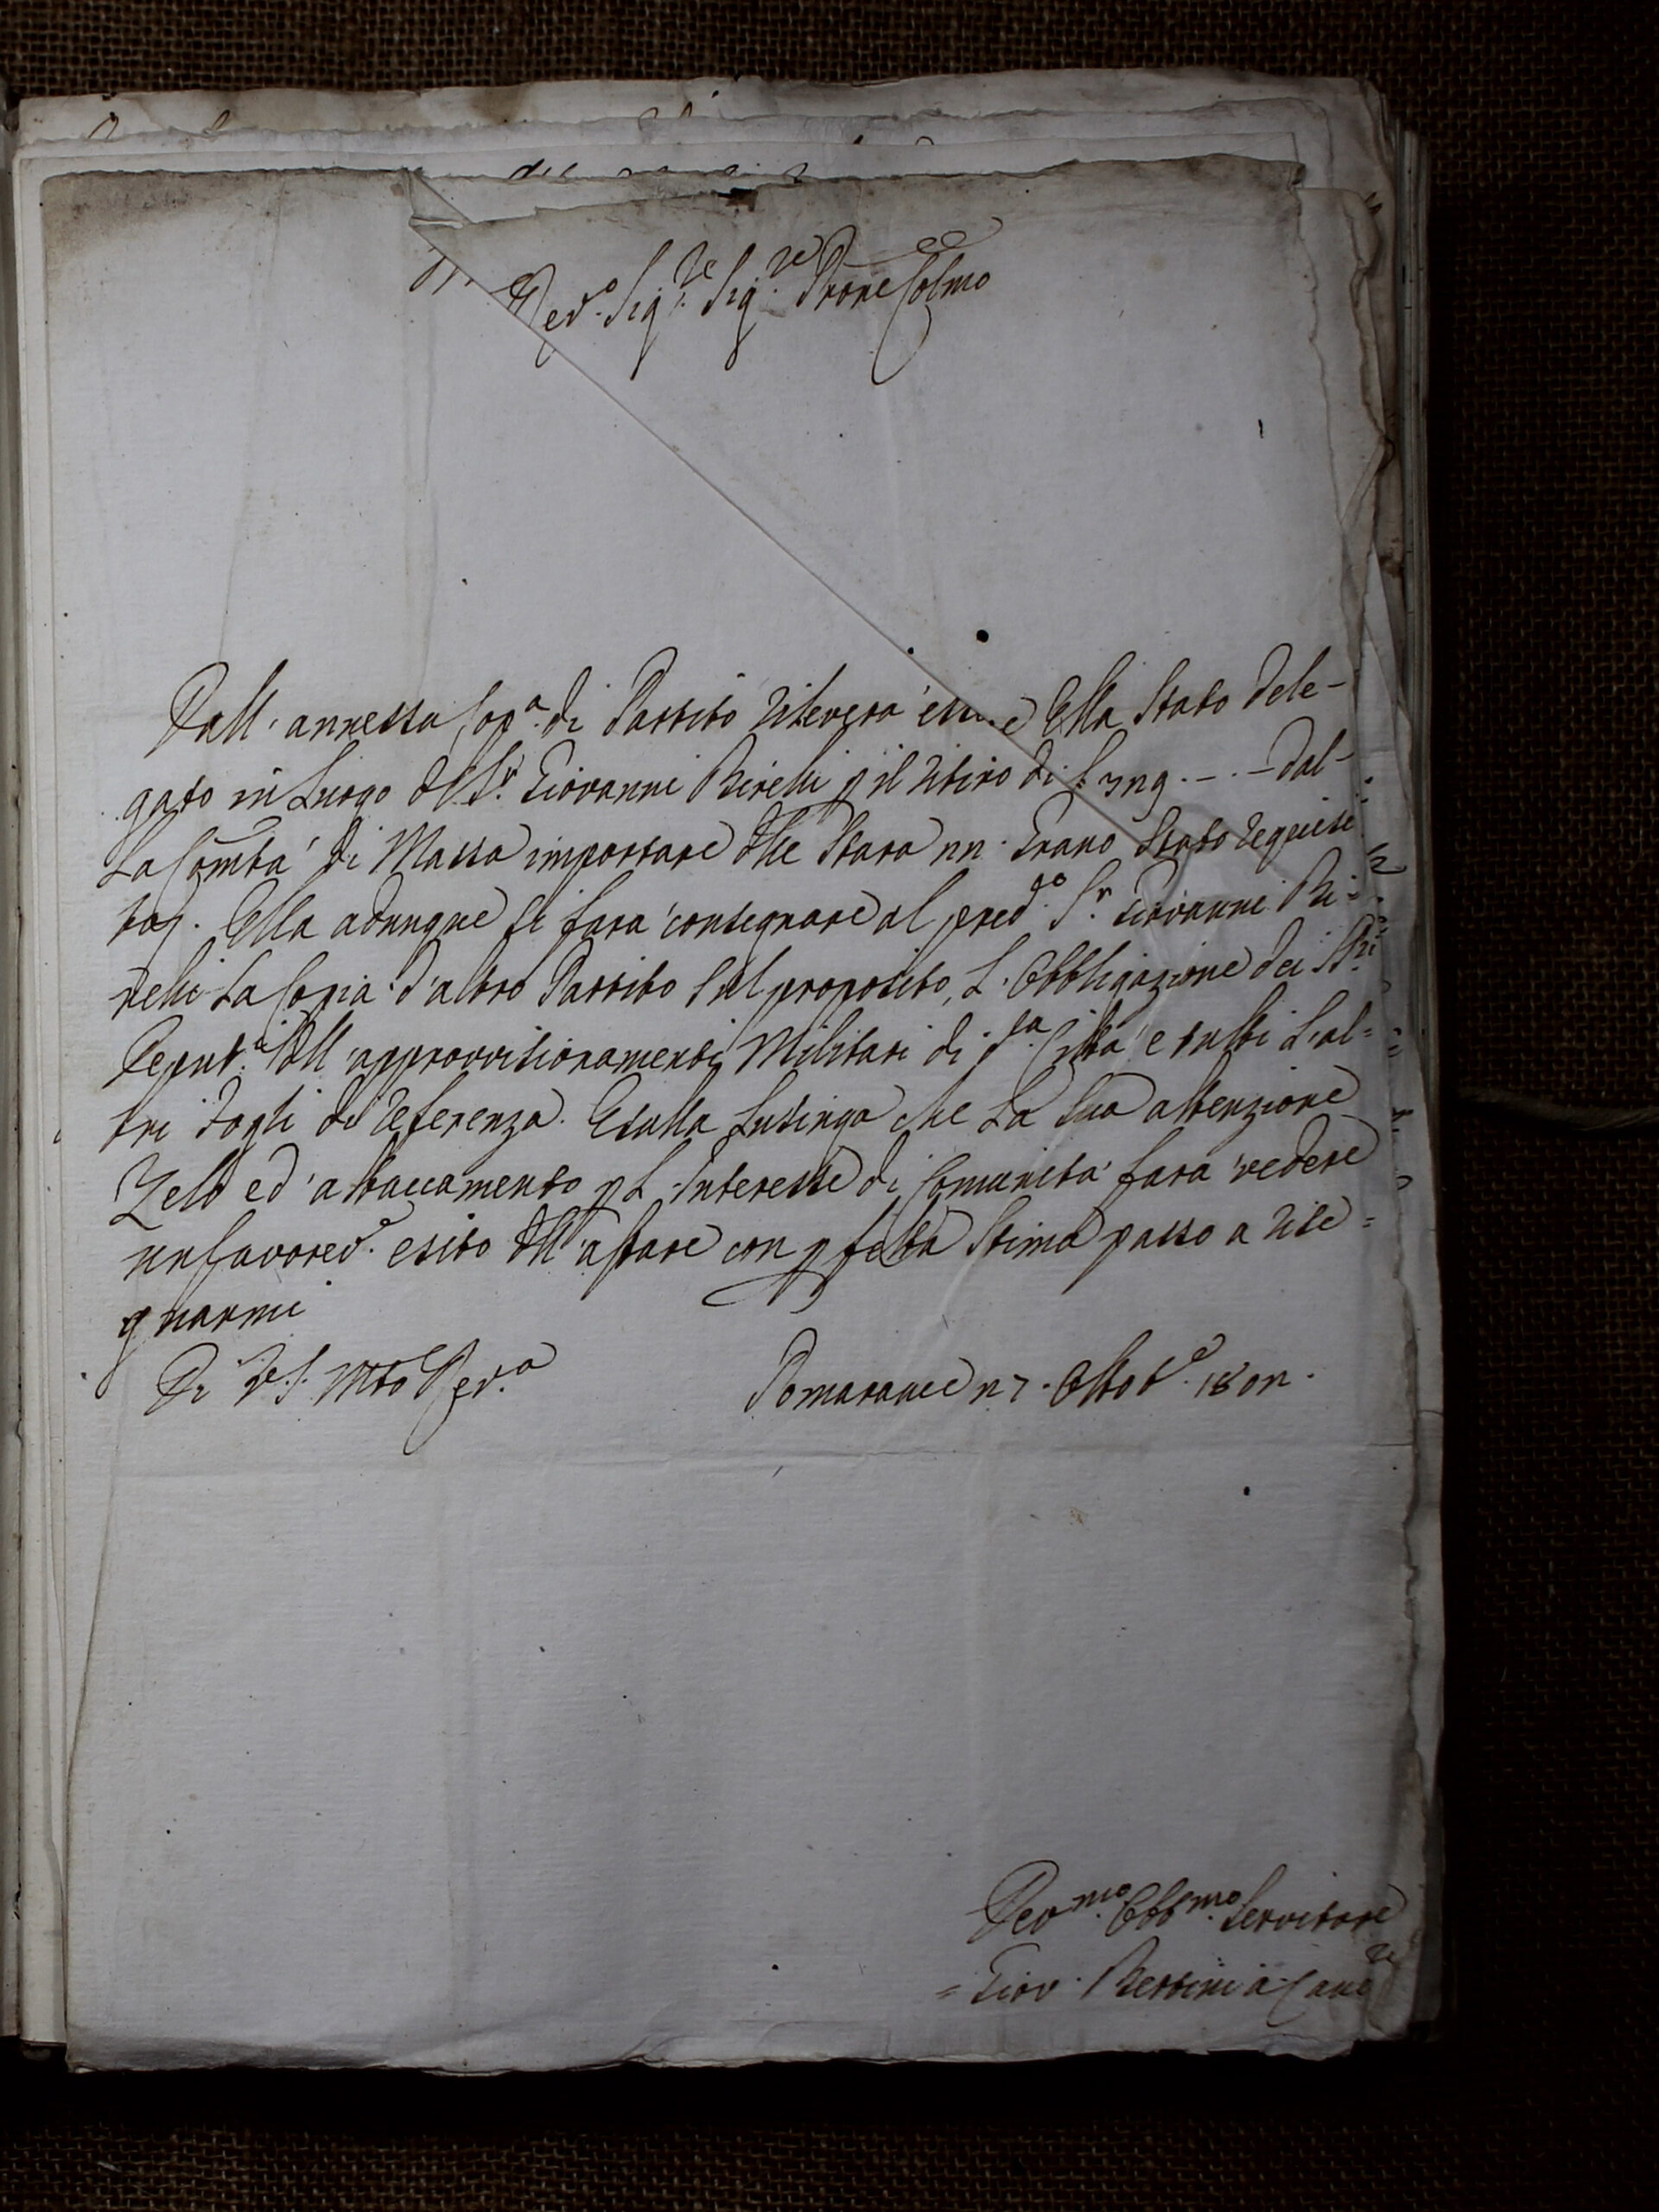 Rev.o Sig.re Sig.re Prone Colmo
Dall' annessa Cop.a di Partito rileverà essere Ella Stato dele-
gato in Luogo del S.r Giovanni Birelli p il ritiro di
La Comtà di Massa importare delle Stara Grano Stato requisi
Ella adunque si farà consegnare al pred.o S.r Giovanni Bi=
relli La Copia d'altro Partito sul proposito, L'Obbligazione dei SS.ri
Deput.i all' approvvisionamenti Militari di d.a Città e tutti L'al=
tri Fogli di referenza. E sulla Lusinga che La sua attenzione
Zelo ed attaccamento p L'Interesse di Comunità farà vedere
un favorev.e esito dell' affare con pfetta Stima passo a rise=
gnarmi
Di V.S. Mto Rev.a
Pomarance 27. Ottob.e
Dev.mo Obb.mo Servitore
= Giov. Bettini a Canc.re